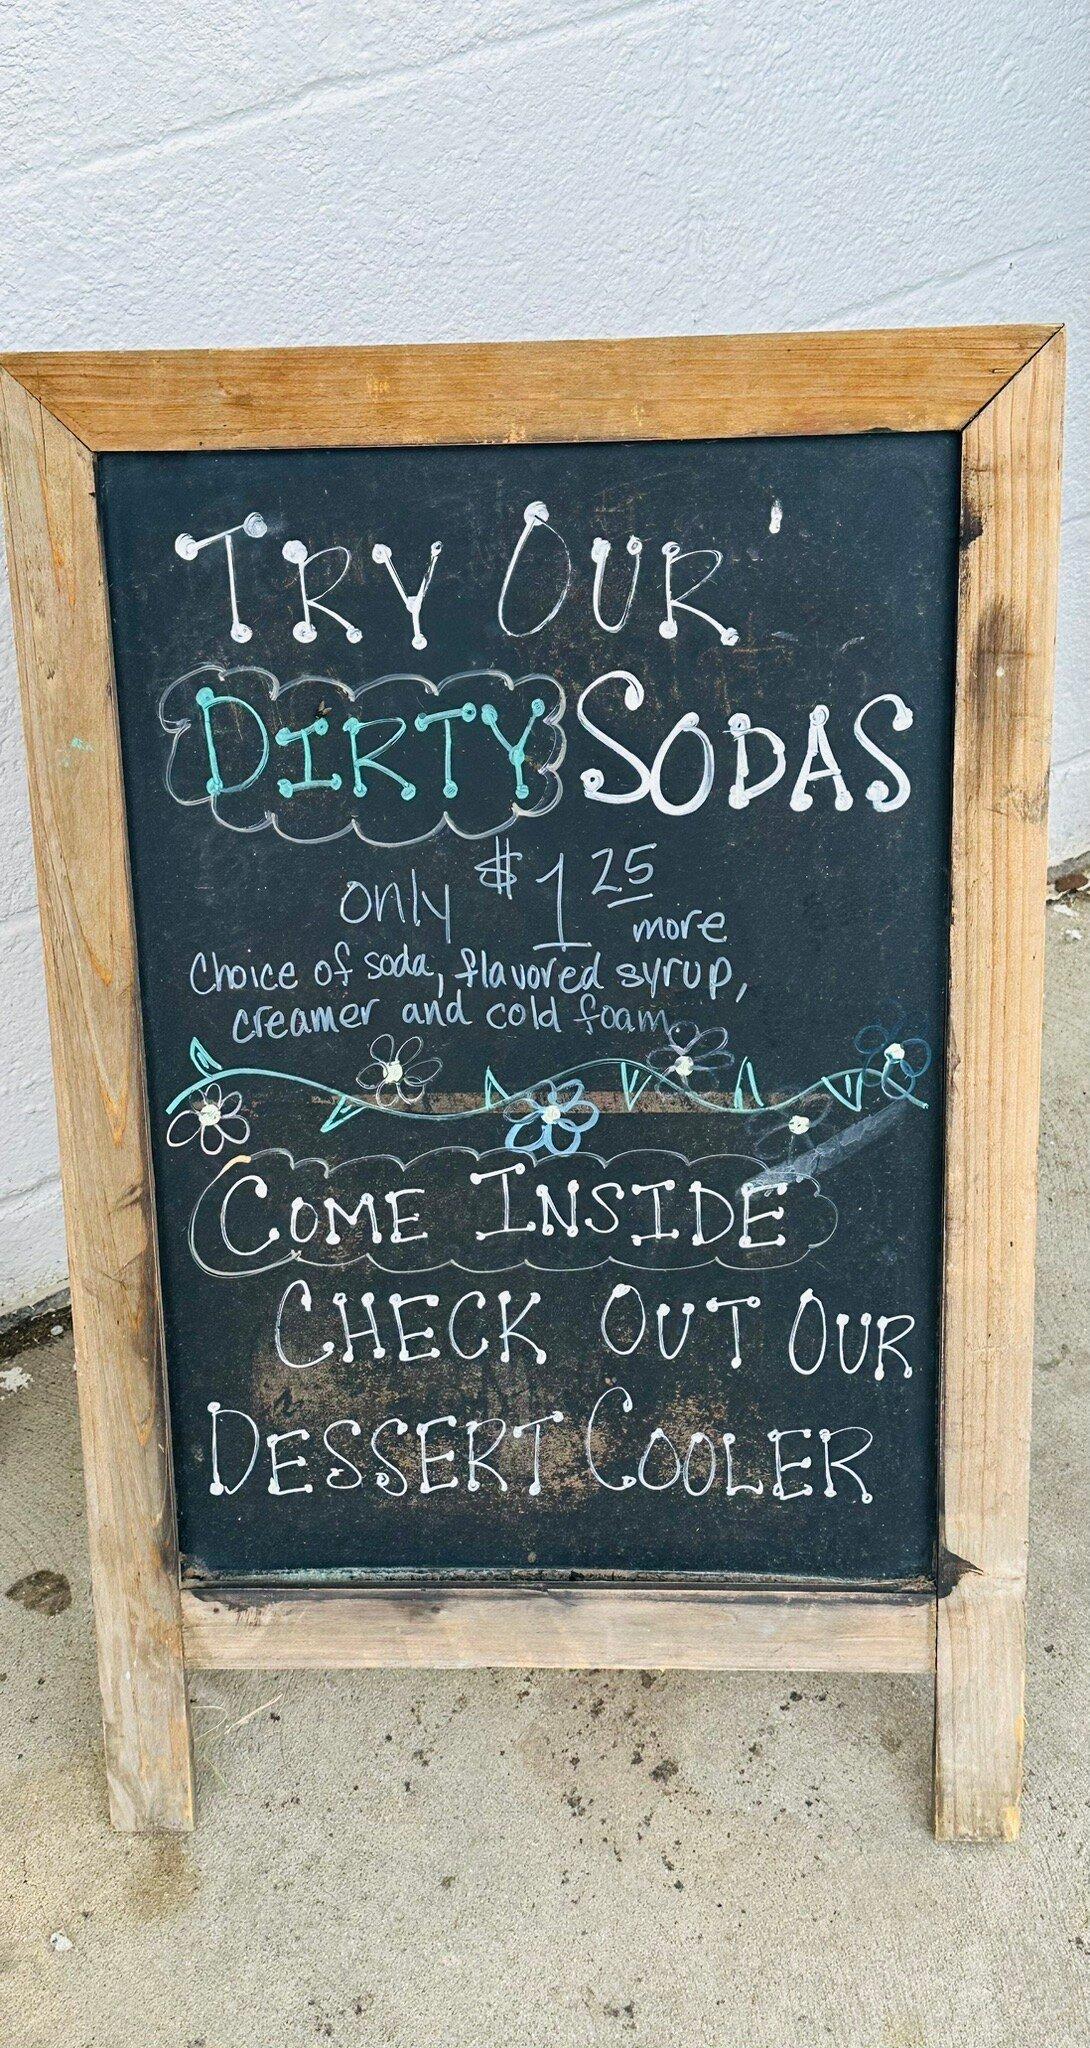 TRY OUR
DIRTY SODAS
only $1 25 more
Choice of soda, flavored syrup,
creamer and cold foam
COME INSIDE
CHECK OUT OUR
DESSERT COOLER